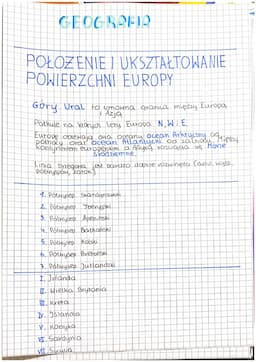 GEOGRAFIA
POŁOŻENIE I UKSZTAŁTOWANIE
POWIERZCHNI EUROPY
Góry Ural to umowna granica między Europą
i Azją
Położenie na której Europa N, W i E.
Europę oblewają dwa oceany ocean Arktyczny od
północy oraz ocean Atlantycki od zachodu. Między
kontynentem europejskim a Afryką rozciąga się Morze
Śródziemne.
Linia brzegowa jest bardzo dobrze rozwinięta (dużo wysp,
półwyspów, zatok)
1. Półwysep Skandynawski
2. Półwysep Iberyjski
3. Półwysep Apeniński
4. Półwysep Bałkański
5. Półwysep Kolski
6. Półwysep Bretoński
7. Półwysep Jutlandzki
I. Irlandia
II. Wielka Brytania
III. Kreta
IV. Islandia
V. Korsyka
VI. Sardynia
VII. Sycylia